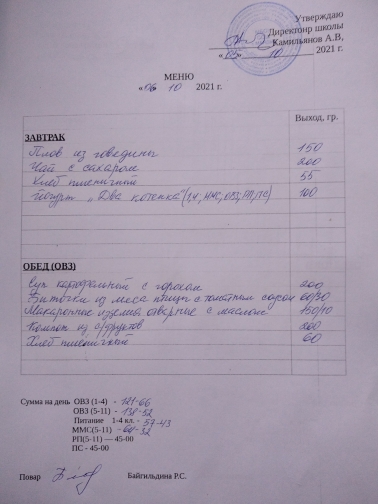 Утверждаю
Директоир школы
Камильянов А.В,
«05» 10 2021 г.
МЕНЮ
«06 10 2021 г.
Выход, гр.
ЗАВТРАК
Плов из говядины 150
Чай с сахаром 200
Хлеб пшеничный 55
Йогурт „Два котенка" (1,4, ММС, ОВЗ, РП, ПС) 100
ОБЕД (ОВЗ)
Суп картофельный с горохом 200
Биточки из мяса птицы с томатным соусом 60/30
Макаронные изделия отварные с маслом 150/10
Компот из с/фруктов 200
Хлеб пшеничный 60
Сумма на день ОВЗ (1-4) - 121-66
ОВЗ (5-11) - 138-52
Питание 1-4 кл. - 57-43
ММС(5-11) - 64-32
РП(5-11) — 45-00
ПС - 45-00
Повар Байгильдина Р.С.